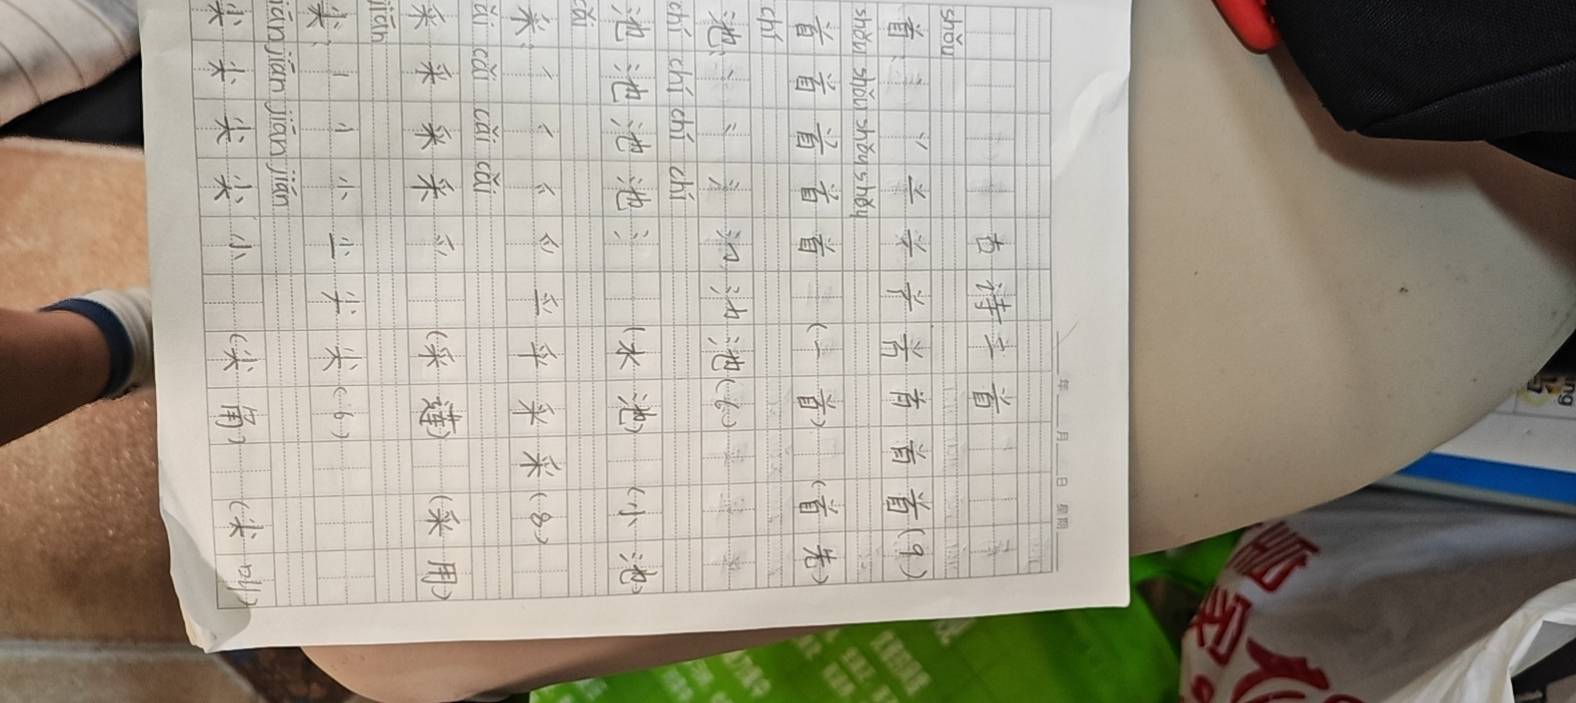 古诗二首
shǒu
首:丶丷䒑䒑产首首首首(9)
shǒu shǒu shǒu shǒu
首首首首首 (一首) (首先)
chí
池:丶丶氵氿汕池(6)
chí chí chí chí
池池池池氵 (水池) (小池)
cǎi
采:一丆爫爫平采采采(8)
cǎi cǎi cǎi cǎi
采采采采爫 (采莲) (采用)
jiān
尖:丨小小尐尖尖(6)
jiān jiān jiān jiān
尖尖尖尖小 (尖角) (尖叫)
年 月 日 星期